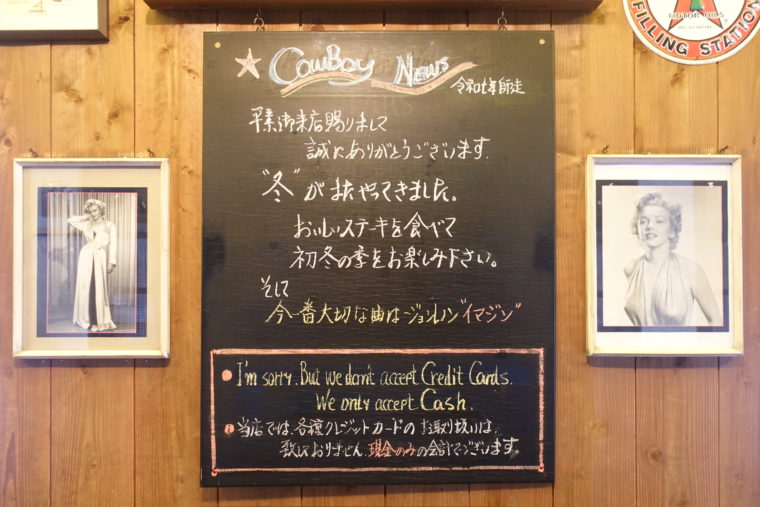 MOTOR OILS
FILLING STATION
CowBoy News
令和七年師走
平素御来店賜りまして
誠にありがとうございます.
"冬"がまたやってきました。
おいしいステーキを食べて
初冬の季をお楽しみ下さい。
そして
今一番大切な曲はジョンレノン"イマジン"
I'm sorry. But we don't accept Credit Cards.
We only accept Cash.
当店では、各種クレジットカードのお取り扱いは、
致しておりません。現金のみの会計でございます。